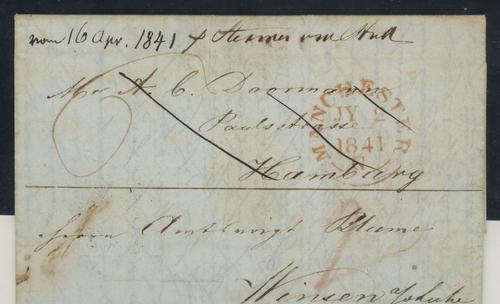 vom 16 Apr. 1841 p Steamer von Hull
Mr A. C. Doormann
Paulsstrasse
Hamburg
MANCHESTER
JY 2
1841
Herrn Amtsvoigt Blume
Winsen a/d Luhe